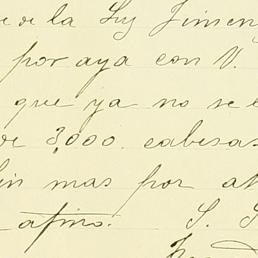 de la Luz Jimen
por aya con V.
que ya no se e
de 3,000. cabesas
sin mas por a
afmo. S. S.